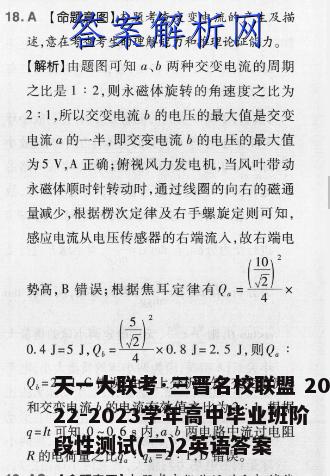 18. A 【命题意图】本题考查交变电流的产生及描
述,意在考查考生的理解能力和推理论证能力。
答案解析网
【解析】由题图可知 a、b 两种交变电流的周期
之比是 1:2,则永磁体旋转的角速度之比为
2:1,所以交变电流 b 的电压的最大值是交变
电流 a 的一半,即交变电流 b 的电压的最大值
为 5 V,A 正确;俯视风力发电机,当风叶带动
永磁体顺时针转动时,通过线圈的向右的磁通
量减少,根据楞次定律及右手螺旋定则可知,
感应电流从电压传感器的右端流入,故右端电
势高,B 错误;根据焦耳定律有 Qₐ = (10/√2)²/4 ×
0.4 J=5 J,Q_b = (5/√2)²/4 ×0.8 J=2.5 J,则 Qₐ:
天一大联考·三晋名校联盟 20
22-2023学年高中毕业班阶
段性测试(二)2英语答案
和交变电流
q=It 可知 0~0.6 s 内,a、b 两电路中流过电阻
R 的电荷量之比 错误。